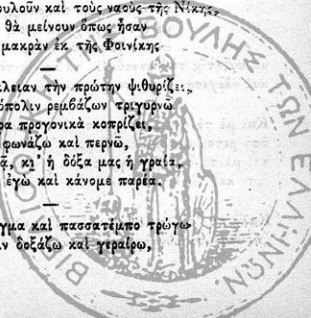 πουλοῦν καὶ τοὺς ναοὺς τῆς Νίκης,
θὰ μείνουν ὅπως ἦσαν
μακρὰν ἐκ τῆς Φοινίκης
τὴν πρώτην ψιθυρίζει,
ρεμβάζων τριγυρνῶ
προγονικὰ κοπρίζει,
φωνάζω καὶ περνῶ,
κι' ἡ δόξα μας ἡ γραία,
ἐγὼ καὶ κάνομε παρέα.
καὶ πασσατέμπο τρώγω
δοξάζω καὶ γεραίρω,
ΒΙΒΛΙΟΘΗΚΗ ΤΗΣ ΒΟΥΛΗΣ ΤΩΝ ΕΛΛΗΝΩΝ